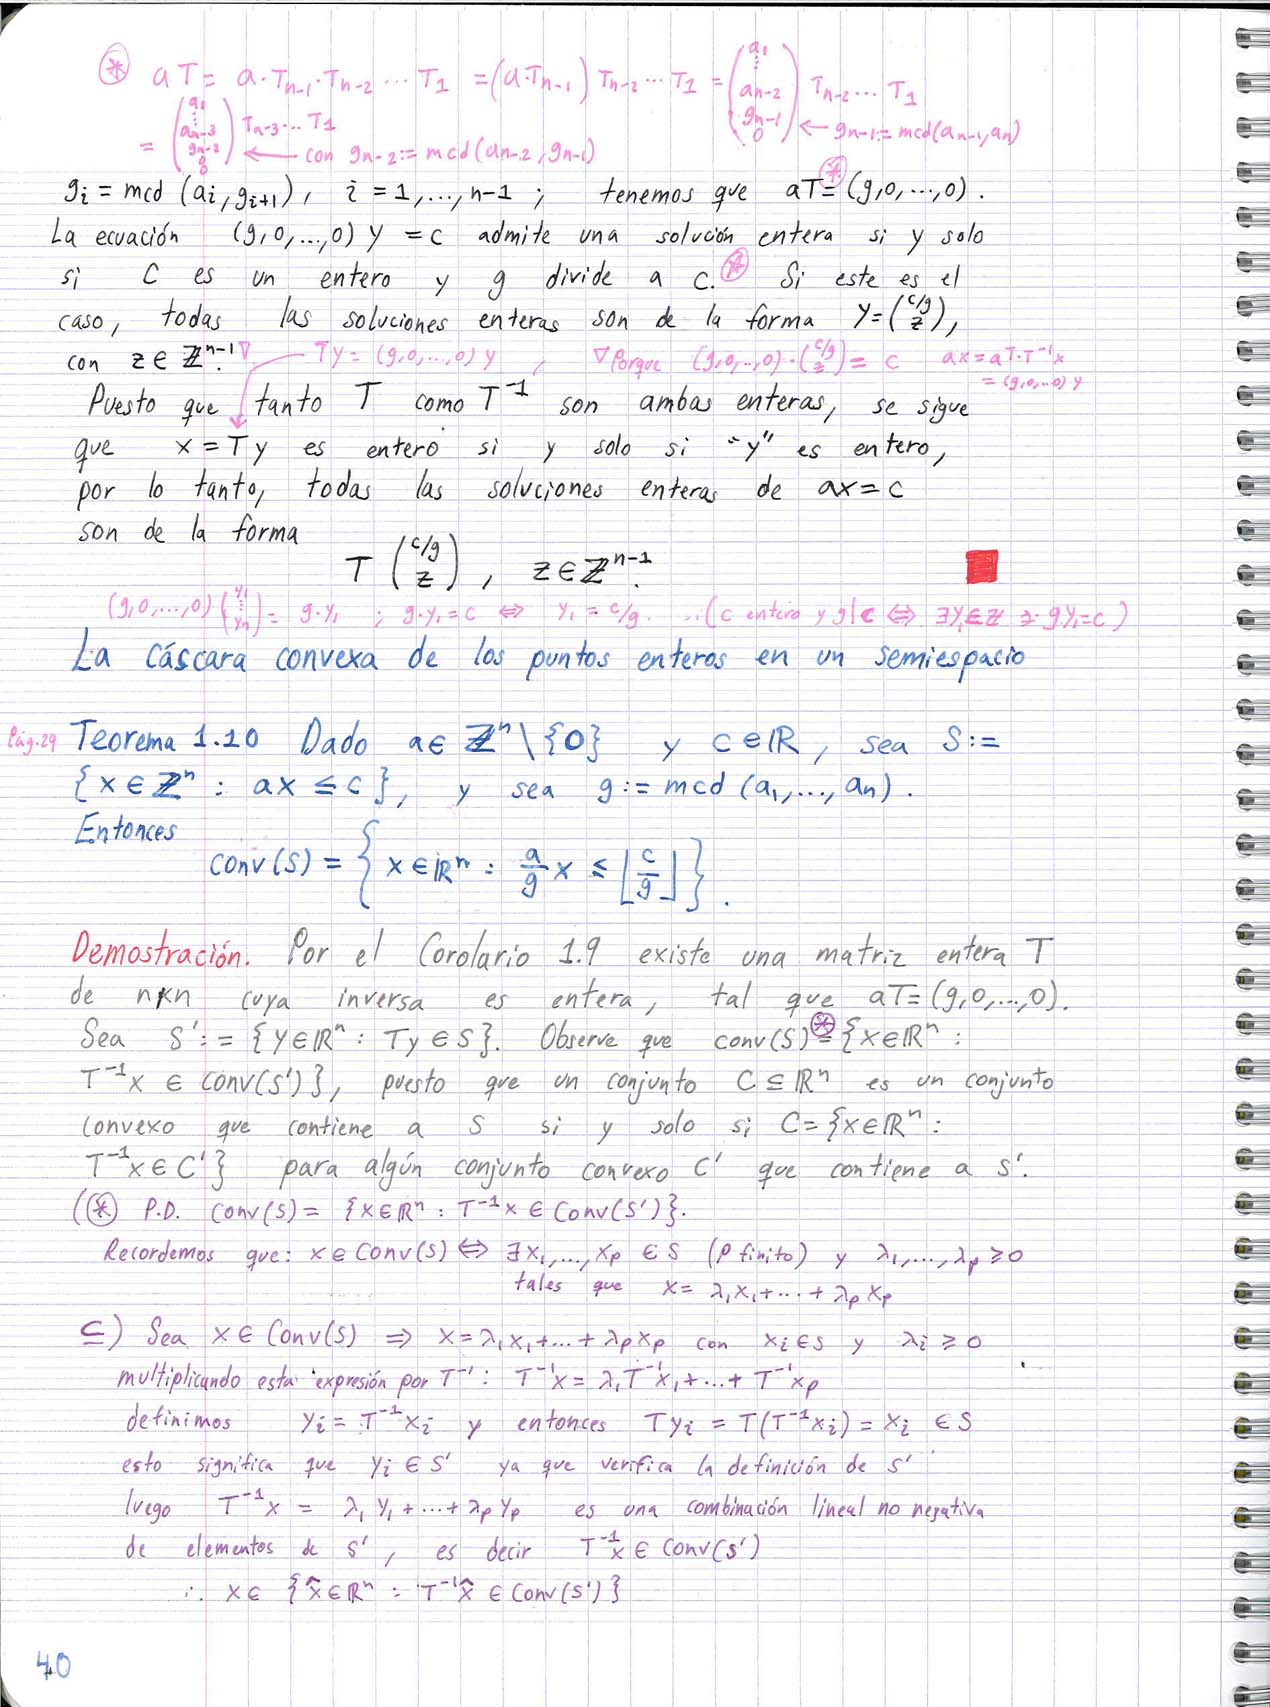 ⊛ aT = a·Tn-1·Tn-2 ··· T1 = (a·Tn-1) Tn-2 ··· T1 = (a1 ⋮ an-2 gn-1 0) Tn-2 ··· T1
← gn-1 := mcd(an-1, an)
= (a1 ⋮ an-3 gn-2 0 0) Tn-3 ··· T1
← con gn-2 := mcd(an-2, gn-1)
gi = mcd (ai, gi+1), i = 1, ..., n-1 ; tenemos que aT ⊛= (g,0,...,0).
La ecuación (g,0,...,0) y = c admite una solución entera si y solo
si C es un entero y g divide a c. ⊛ Si este es el
caso, todas las soluciones enteras son de la forma y = (c/g z),
con z ∈ ℤⁿ⁻¹. ∇ Ty = (g,0,...,0) y , ∇ Porque (g,0,...,0)·(c/g z) = c ax = aT·T⁻¹x
= (g,0,...0) y
Puesto que tanto T como T⁻¹ son ambas enteras, se sigue
que x = Ty es entero si y solo si "y" es entero,
por lo tanto, todas las soluciones enteras de ax = c
son de la forma
T (c/g z) , z ∈ ℤⁿ⁻¹.
(g,0,...,0)(y1 ⋮ yn) = g·y1 ; g·y1 = c ⇔ y1 = c/g. ...(c entero y g|c ⇔ ∃y1∈ℤ ∋· gy1=c)
La cáscara convexa de los puntos enteros en un semiespacio
Pág.29 Teorema 1.10 Dado a ∈ ℤⁿ \ {0} y c ∈ ℝ, sea S :=
{x ∈ ℤⁿ : ax ≤ c}, y sea g := mcd (a1, ..., an).
Entonces
conv(S) = {x ∈ ℝⁿ : a/g x ≤ ⌊c/g⌋}.
Demostración. Por el Corolario 1.9 existe una matriz entera T
de n×n cuya inversa es entera, tal que aT = (g,0,...,0).
Sea S' := {y ∈ ℝⁿ : Ty ∈ S}. Observe que conv(S) ⊛= {x ∈ ℝⁿ :
T⁻¹x ∈ conv(S')}, puesto que un conjunto C ⊆ ℝⁿ es un conjunto
convexo que contiene a S si y solo si C = {x ∈ ℝⁿ :
T⁻¹x ∈ C'} para algún conjunto convexo C' que contiene a S'.
(⊛ P.D. Conv(S) = {x ∈ ℝⁿ : T⁻¹x ∈ Conv(S')}.
Recordemos que: x ∈ Conv(S) ⇔ ∃ x1, ..., xp ∈ S (p finito) y λ1, ..., λp ≥ 0
tales que x = λ1x1 + ··· + λp xp
⊆) Sea x ∈ Conv(S) ⇒ x = λ1x1 + ... + λpxp con xi ∈ S y λi ≥ 0
multiplicando esta expresión por T⁻¹ : T⁻¹x = λ1T⁻¹x1 + ... + T⁻¹xp
definimos yi = T⁻¹xi y entonces Tyi = T(T⁻¹xi) = xi ∈ S
esto significa que yi ∈ S' ya que verifica la definición de S'
luego T⁻¹x = λ1y1 + ··· + λpyp es una combinación lineal no negativa
de elementos de S', es decir T⁻¹x ∈ Conv(S')
∴ x ∈ {x̂ ∈ ℝⁿ : T⁻¹x̂ ∈ Conv(S')}
40